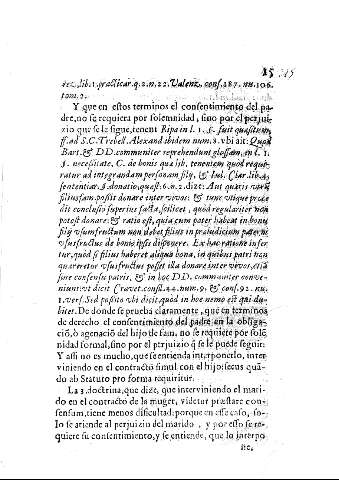 15 215
rec. lib. 1. practicar. q. 2. n. 22. Valenz. cons. 187. nu. 106.
tom. 2.
Y que en estos terminos el consentimiento del pa-
dre, no se requiera por solemnidad, sino por el perjui-
zio que se le sigue, tenent Ripa in l. 1. §. si quæsitum
ff. ad S.C. Trebel. Alexand. ibidem num. 3. vbi ait: Quod
Bart. & DD. communiter reprehendunt glossam, in l. 1.
§. necessitate, C. de bonis quæ lib. tenentem quod requi-
ratur ad integrandam personam filij, & Iul. Clar. lib. 4.
sententiar. §. donatio, quæst. 6. n. 2. dizt: Aut quæris an
filiusfam. possit donare inter vivos: & tunc vtique proce-
dit conclusio superius facta, scilicet, quod regulariter non
potest donare: & ratio est, quia cum pater habeat in bonis
filij vsumfructum non debet filius in præiudicium patris
vsusfructus de bonis ipsis disponere. Ex hac ratione infer-
tur, quòd si filius haberet aliqua bona, in quibus patri non
quæreretur vsusfructus posset illa donare inter vivos, etiã
sine consensu patris, & in hoc DD. communiter conve-
niunt vt dicit Cravet. cons. 144. num. 9. & cons. 92. nu.
1. vers. Sed posito vbi dicit, quod in hoc nemo est qui du-
bitet. De donde se prueba claramente, que en terminos
de derecho el consentimiento del padre en la obliga-
ció, ò agenació del hijo de fam. no se requiere por sole
nidad formal, sino por el perjuizio q̃ se le puede seguir.
Y assi no es mucho, que se entienda interponerlo, inter-
viniendo en el contracto simul con el hijo: secus quã-
do ab Statuto pro forma requiritur.
La 3. doctrina, que dize, que interviniendo el mari-
do en el contracto de la muger, videtur præstare con-
sensum, tiene menos dificultad: porque en esse caso, so-
lo se atiende al perjuizio del marido, y por esso se re-
quiere su consentimiento, y se entiende, que lo interpo
ne,